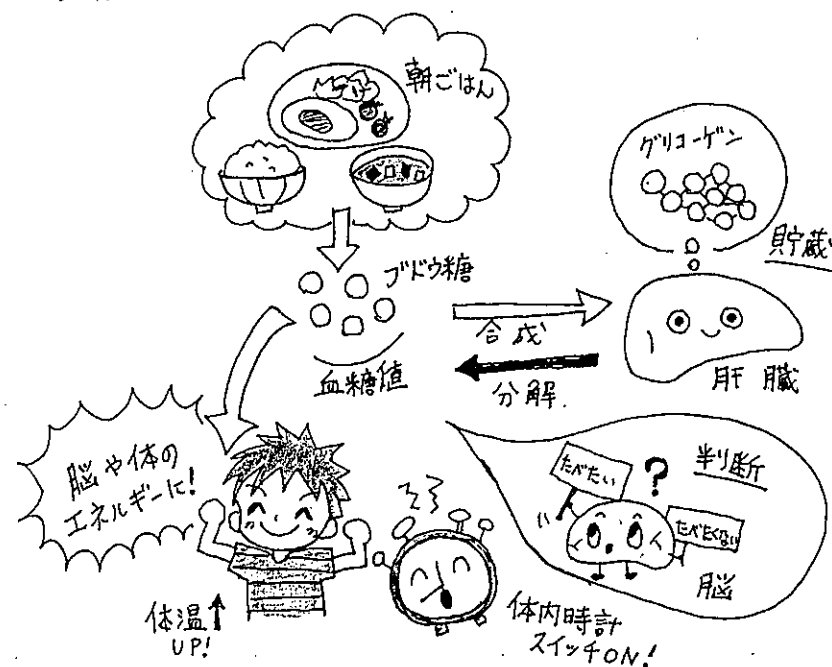 朝ごはん
グリコーゲン
貯蔵
ブドウ糖
合成
血糖値
分解.
肝臓
脳や体の
エネルギーに!
たべたい
?
判断
たべたくない
脳
体温↑
UP!
体内時計
スイッチON!